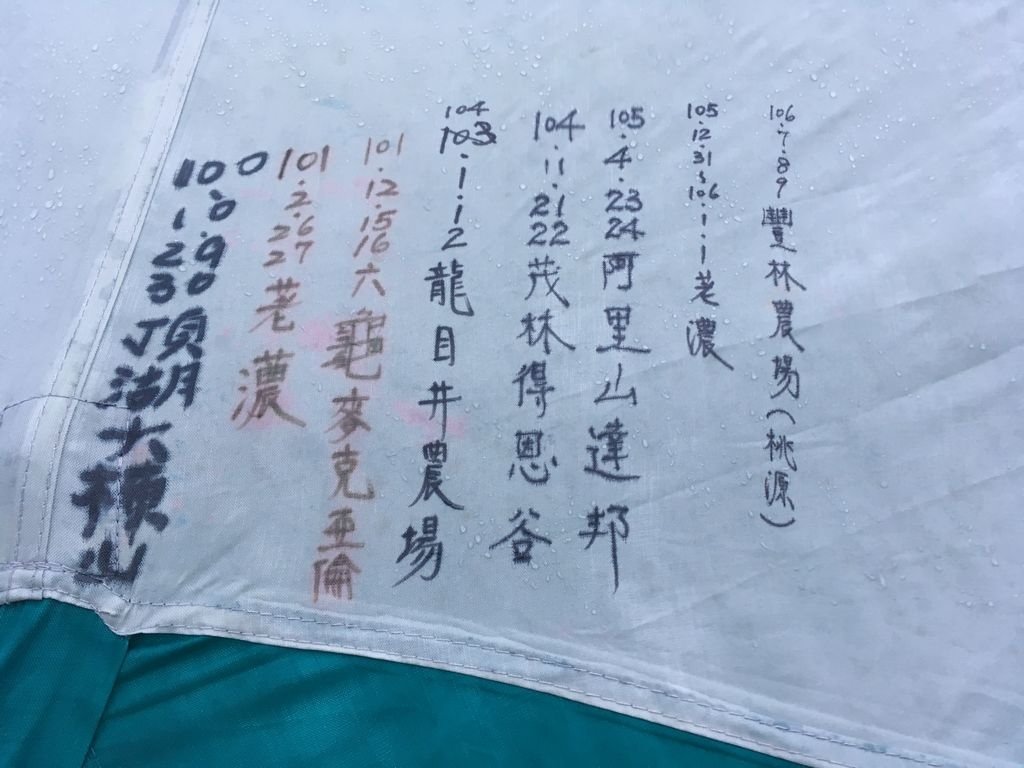 100.10.29.30頂湖大山
101.2.26 27荖濃
101.12.15 16六龜麥克亞倫
104 103.1.1.2龍目井農場
104.11.21 22茂林得恩谷
105.4.23 24阿里山達邦
105.12.31~106.1.1荖濃
106.7.8 9豐林農場(桃源)